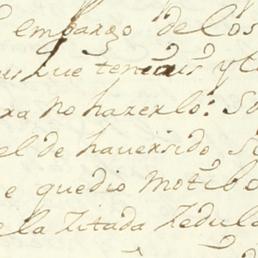 embargo de los
que teniais y l
ra no hazerlo: So
el de haversido S
e quedio motibo
ela Zitada Zedula